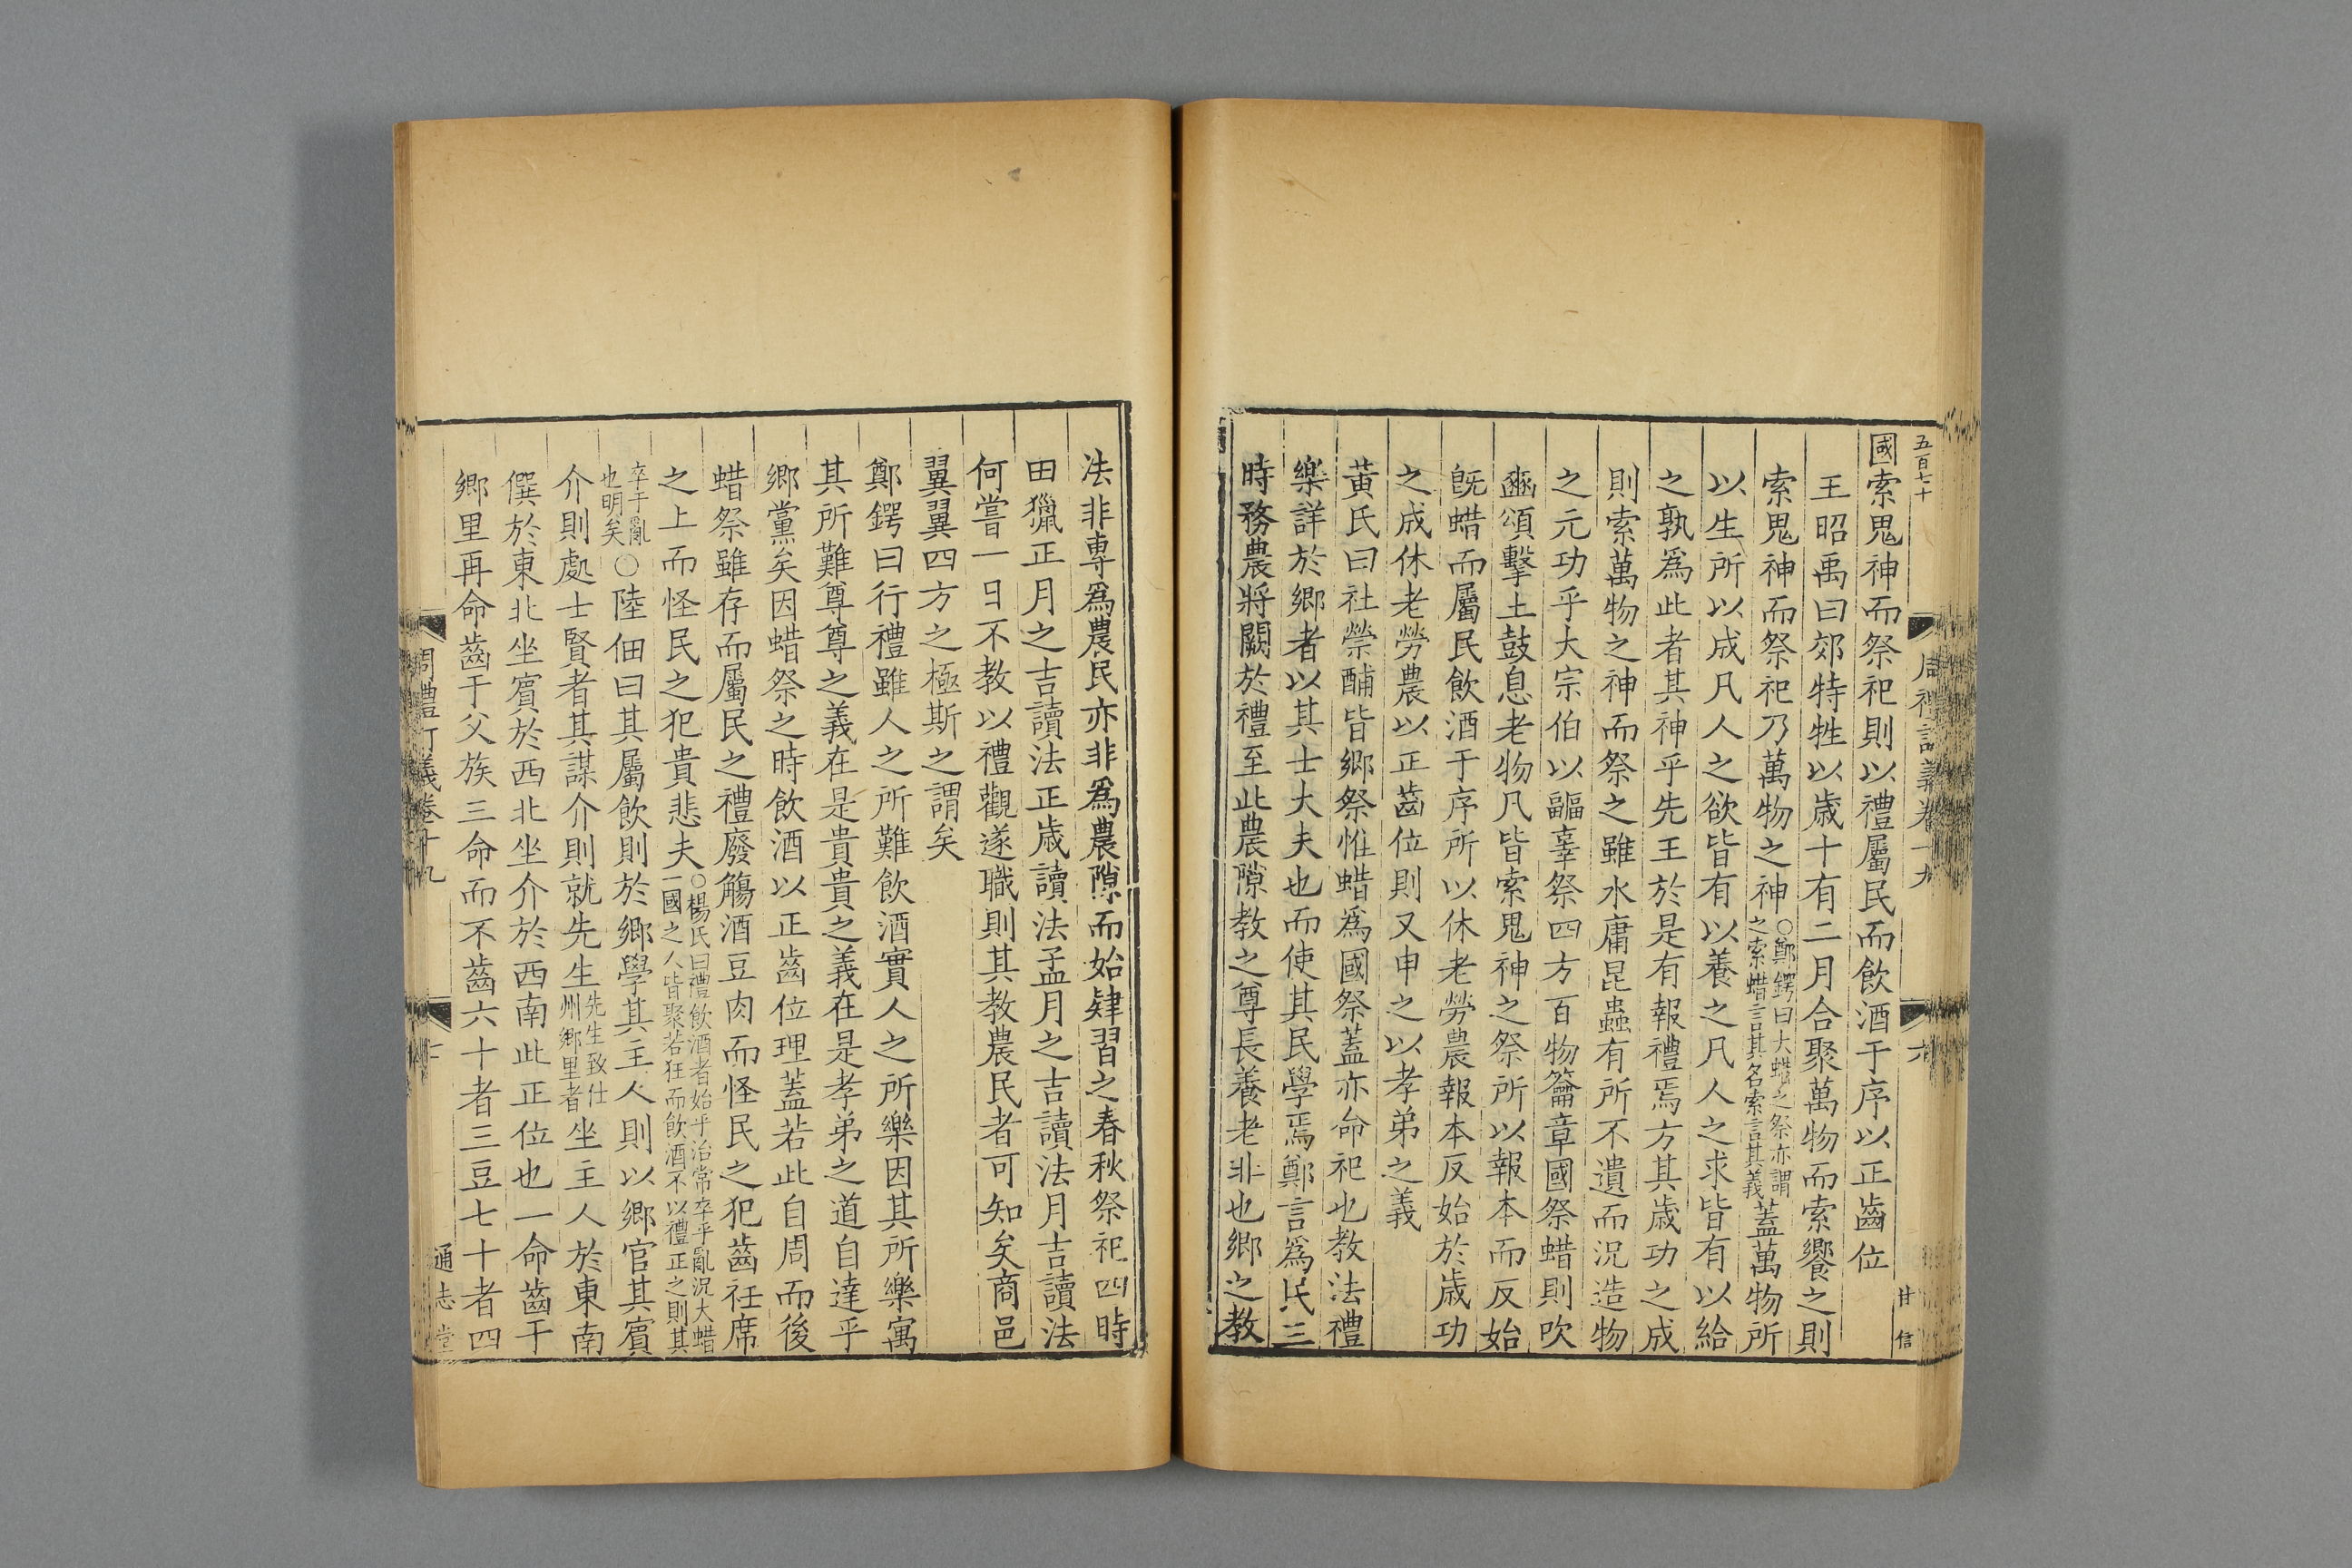 五百七十
周禮訂義卷十九
六
甘信
國索鬼神而祭祀則以禮屬民而飲酒于序以正齒位
王昭禹曰郊特牲以歲十有二月合聚萬物而索饗之則
索鬼神而祭祀乃萬物之神○鄭鍔曰大蜡之祭亦謂之索蜡言其名索言其義蓋萬物所
以生所以成凡人之欲皆有以養之凡人之求皆有以給
之孰爲此者其神乎先王於是有報禮焉方其歲功之成
則索萬物之神而祭之雖水庸昆蟲有所不遺而況造物
之元功乎大宗伯以疈辜祭四方百物籥章國祭蜡則吹
豳頌擊土鼓息老物凡皆索鬼神之祭所以報本而反始
旣蜡而屬民飲酒于序所以休老勞農報本反始於歲功
之成休老勞農以正齒位則又申之以孝弟之義
黃氏曰社禜酺皆鄉祭惟蜡爲國祭蓋亦命祀也教法禮
樂詳於鄉者以其士大夫也而使其民學焉鄭言爲民三
時務農將闕於禮至此農隙教之尊長養老非也鄉之教
法非専爲農民亦非爲農隙而始肄習之春秋祭祀四時
田獵正月之吉讀法正歲讀法孟月之吉讀法月吉讀法
何嘗一日不教以禮觀遂職則其教農民者可知矣商邑
翼翼四方之極斯之謂矣
鄭鍔曰行禮雖人之所難飲酒實人之所樂因其所樂寓
其所難尊尊之義在是貴貴之義在是孝弟之道自達乎
鄉黨矣因蜡祭之時飲酒以正齒位理蓋若此自周而後
蜡祭雖存而屬民之禮廢觴酒豆肉而怪民之犯齒衽席
之上而怪民之犯貴悲夫○楊氏曰禮飲酒者始乎治常卒乎亂況大蜡一國之人皆聚若狂而飲酒不以禮正之則其
卒于亂也明矣○陸佃曰其屬飲則於鄉學其主人則以鄉官其賓
介則處士賢者其謀介則就先生先生致仕州鄉里者坐主人於東南
僎於東北坐賓於西北坐介於西南此正位也一命齒于
鄉里再命齒于父族三命而不齒六十者三豆七十者四
周禮訂義卷十九
通志堂